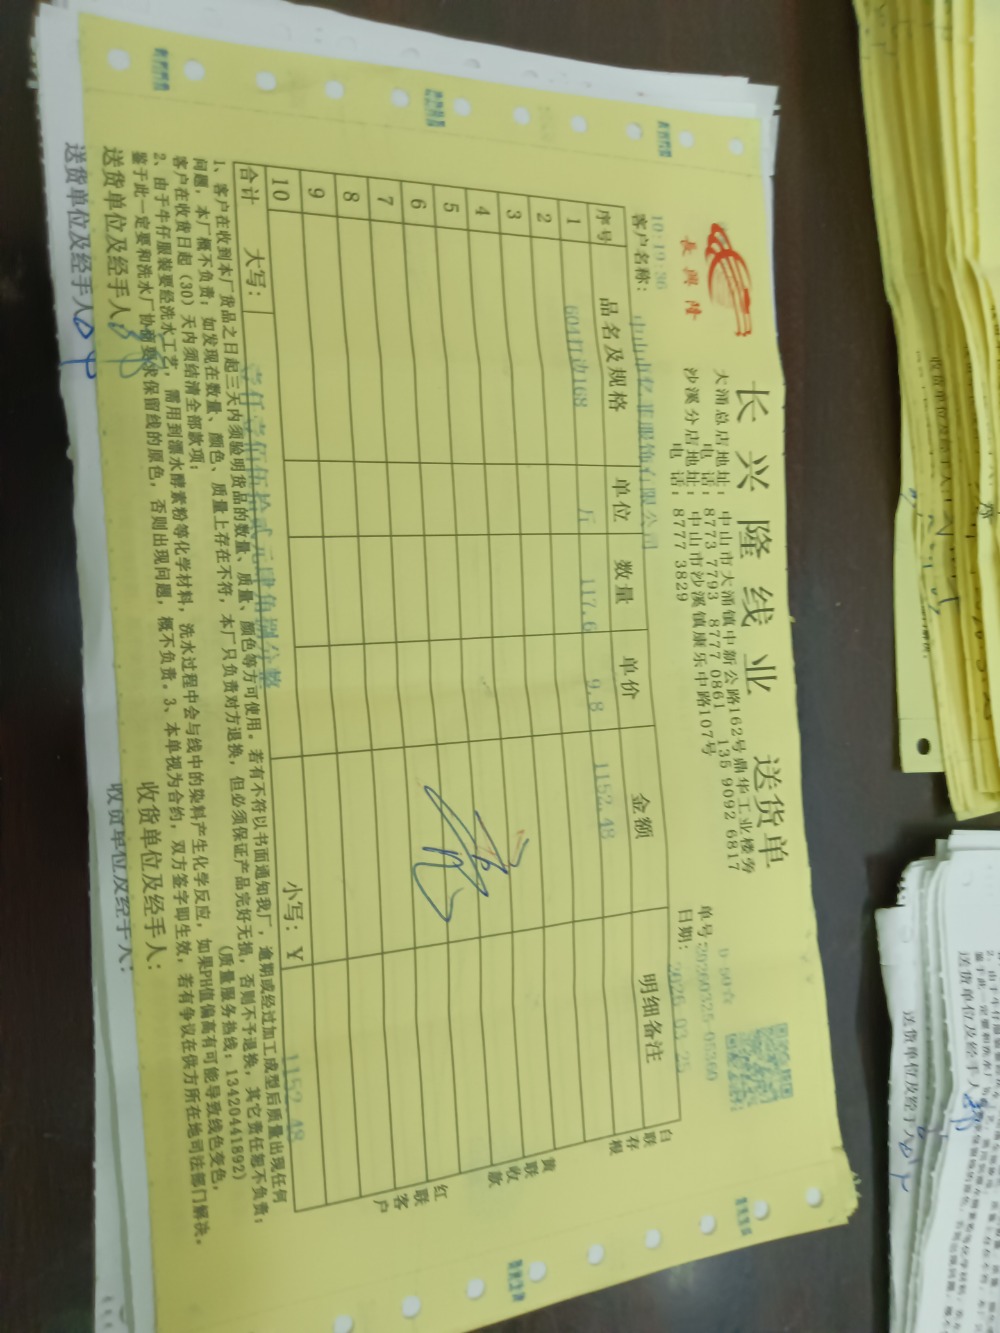 長興隆
长兴隆线业 送货单
大涌总店地址：中山市大涌镇中新公路162号鼎华工业楼旁
电话：8773 7793 8777 0861 135 9092 6817
沙溪分店地址：中山市沙溪镇康乐中路107号
电话：8777 3829
单号：20260325-07360
日期：2026-03-25
10:19:36
客户名称：中山市亿菲服饰有限公司
序号 品名及规格 单位 数量 单价 金额 明细备注
1 604打边168 斤 117.6 9.8 1152.48
2
3
4
5
6
7
8
9
10
合计 大写：壹仟壹佰伍拾贰元肆角捌分整 小写：￥ 1152.48
白联存根
黄联收款
红联客户
1、客户在收到本厂货品之日起三天内须验明货品的数量、质量、颜色等方可使用。若有不符以书面通知我厂，逾期或经过加工成型后质量出现任何
问题，本厂概不负责；如发现在数量、颜色、质量上存在不符，本厂只负责对方退换，但必须保证产品完好无损，否则不予退换，其它责任恕不负责；
客户在收货日起（30）天内须结清全部款项；（质量服务热线：13420441892）
2、由于牛仔服装要经洗水工艺，需用到漂水酵素粉等化学材料，洗水过程中会与线中的染料产生化学反应，如果PH值偏高有可能导致线色变色，
鉴于此一定要和洗水厂协商要求保留线的原色，否则出现问题，概不负责。3、本单视为合约，双方签字即生效，若有争议在供方所在地司法部门解决。
送货单位及经手人： 收货单位及经手人：
送货单位及经手人 收货单位及经手人：
送货单位及经手人
送货单位及经手人